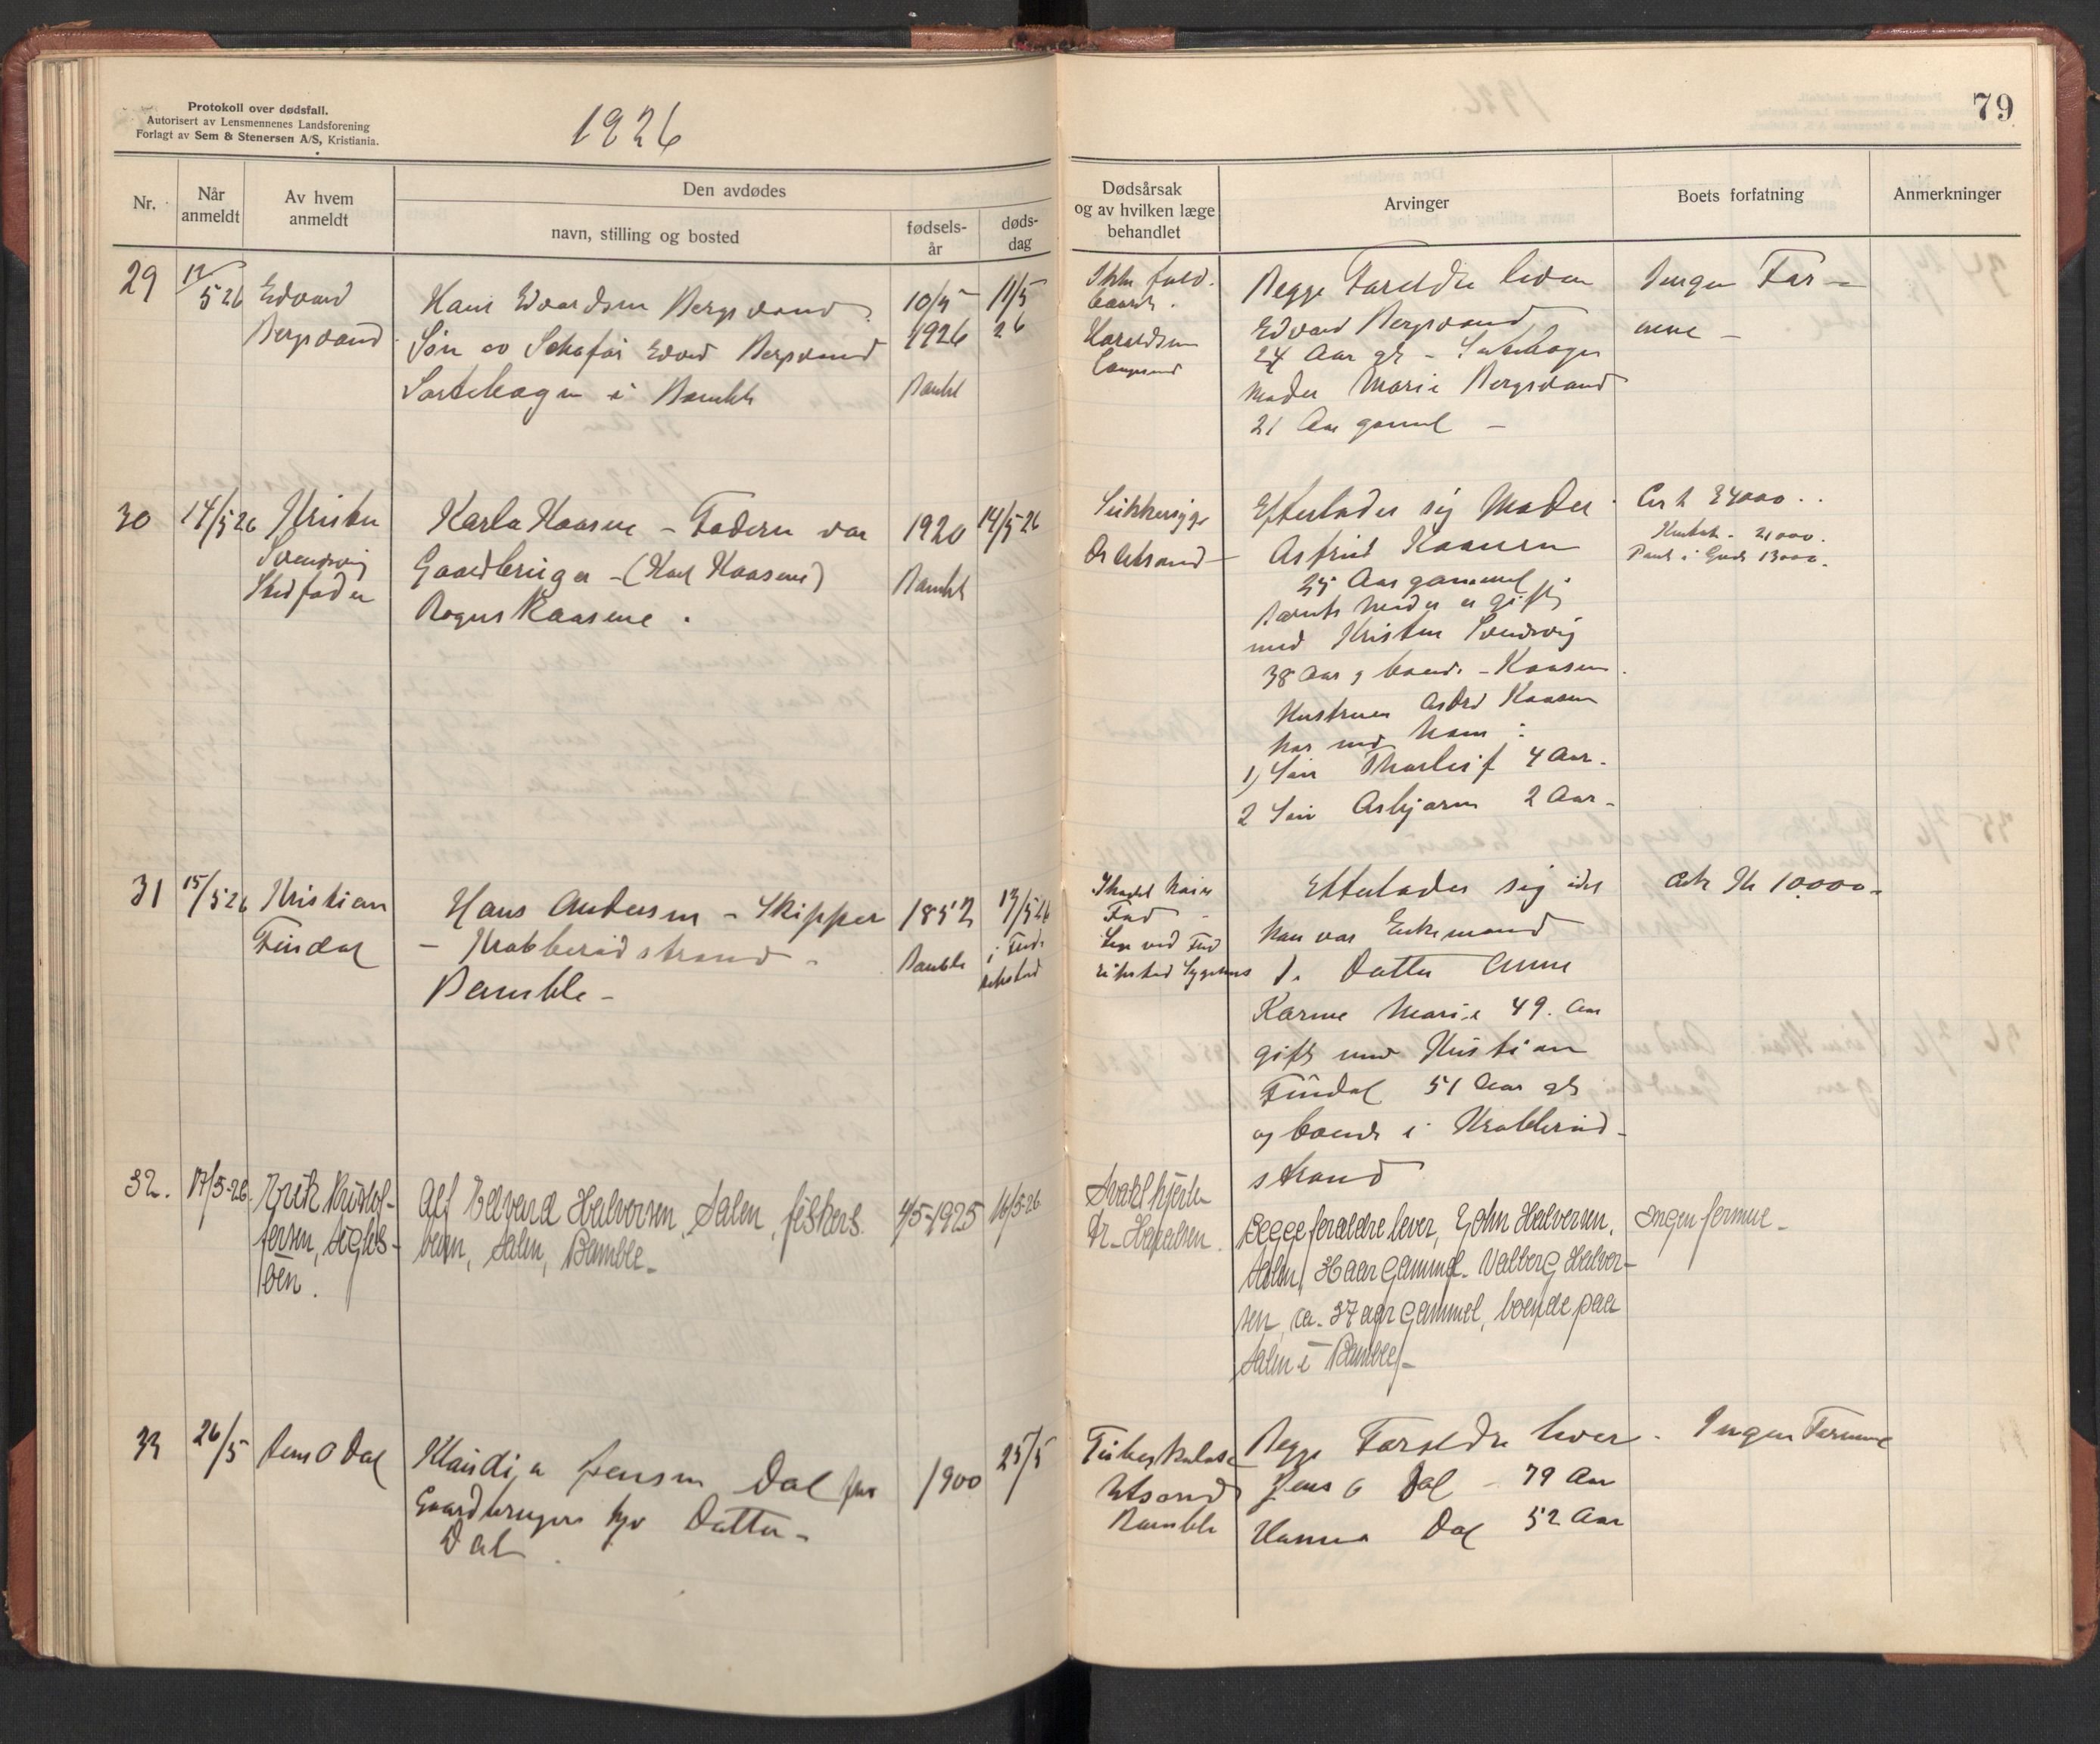 Protokoll over dødsfall.
Autorisert av Lensmennenes Landsforening
Forlagt av Sem & Stenersen A/S, Kristiania.
1926
Nr.
Når anmeldt
Av hvem anmeldt
Den avdødes
navn, stilling og bosted
fødsels-
år
døds-
dag
79
Dødsårsak
og av hvilken læge
behandlet
Arvinger
Boets forfatning
Anmerkninger
29
12/5 26
Edvard
Bergsvand
Hans Edvardsen Bergsvand
Søn av Edvard Bergsvand
i Bamble
10/5
1926
Bamble
11/5
26
Ikke fuld-
baaret.
Haraldsen
Langesund
Begge Foreldre lever
Edvard Bergsvand
24 Aar gl -
Moder Marie Bergsvand
21 Aar gammel -
Ingen For-
mue -
30
14/5 26
Kristen
Svendsvig
Stedfader
Karla Kaasene - Faderen var
Gaardbruger - (Karl Kaasene)
Kaasene.
1920
Bamble
14/5-26
Sukkersyge
Dr
Efterlader sig Moder
Astrid Kaasen
25 Aar gammel.
Barnets Moder er gift
med Kristen Svendsvig
38 Aar g boende - Kaasen.
Hustruen Kaasen
har med ham:
1) Søn Thorleif 4 Aar.
2 Søn Asbjørn 2 Aar -
21000.
13000.
31
15/5 26
Kristian
Findal
Hans Andersen - Skipper
- Krabberødstrand -
Bamble -
1852
Bamble
13/5 26
i Fred-
rikstad
Fred
rikstad Sygehus
Efterlader sig
han var Enkemand
1. Datter Anne
Karine Marie 49. Aar
gift med Kristian
Findal 51 Aar gl
og boende i Krabberød-
strand
Kr 10000 -
32.
17/5-26.
Erik Kristof-
fersen,
Alf Edvard Halvorsen, Salen, fiskers
barn, Salen, Bamble -
4/5-1925
16/5-26
Svakt hjerte
Dr. Haraldsen.
Begge forældre lever, John Halversen,
Salen, 36 aar gammel. Valborg Halver-
sen, ca. 37 aar gammel, boende paa
Salen i Bamble -
Ingen formue -
33
26/5
Jens O Dal
Klaudia Jensen Dal
Gaardbrugers Datter -
Dal
1900
25/5
Bamble
Begge Foreldre lever -
Jens O Dal - 79 Aar
Hanna Dal 52 Aar
Ingen Formue